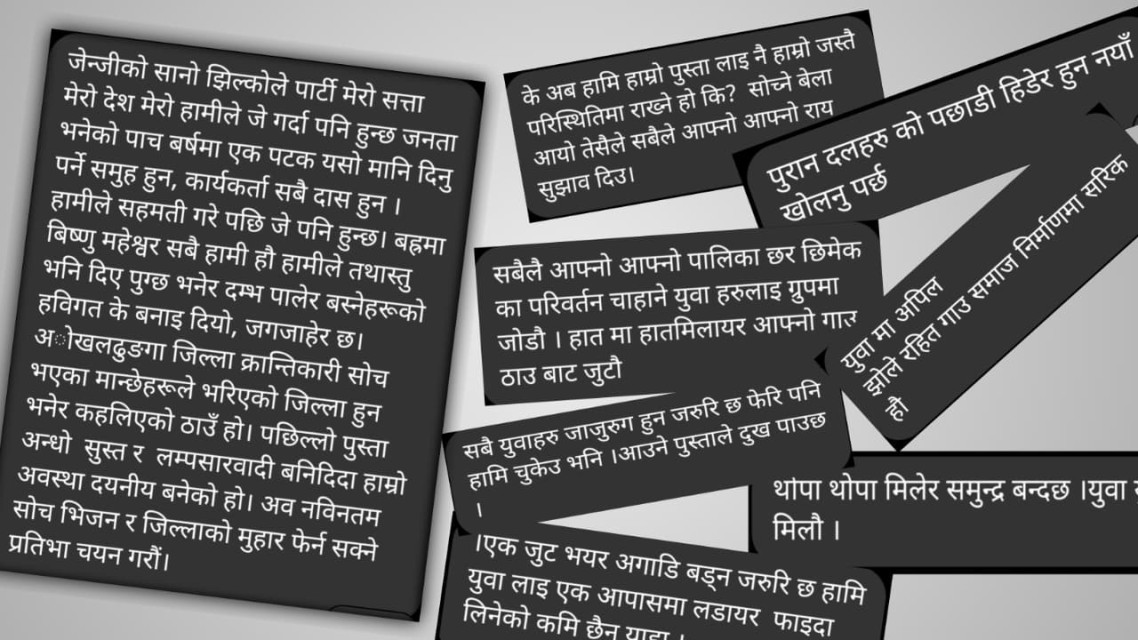 जेन्जीको सानो झिल्कोले पार्टी मेरो सत्ता
मेरो देश मेरो हामीले जे गर्दा पनि हुन्छ जनता
भनेको पाच बर्षमा एक पटक यसो मानि दिनु
पर्ने समुह हुन, कार्यकर्ता सबै दास हुन ।
हामीले सहमती गरे पछि जे पनि हुन्छ। बह्रमा
बिष्णु महेश्वर सबै हामी हौ हामीले तथास्तु
भनि दिए पुग्छ भनेर दम्भ पालेर बस्नेहरूको
हविगत के बनाइ दियो, जगजाहेर छ।
अोखलढुङगा जिल्ला क्रान्तिकारी सोच
भएका मान्छेहरूले भरिएको जिल्ला हुन
भनेर कहलिएको ठाउँ हो। पछिल्लो पुस्ता
अन्धो सुस्त र लम्पसारवादी बनिदिदा हाम्रो
अवस्था दयनीय बनेको हो। अव नविनतम
सोच भिजन र जिल्लाको मुहार फेर्न सक्ने
प्रतिभा चयन गरौं।
के अब हामि हाम्रो पुस्ता लाइ नै हाम्रो जस्तै
परिस्थितिमा राख्ने हो कि? सोच्ने बेला
आयो तेसैले सबैले आफ्नो आफ्नो राय
सुझाव दिउ।
पुरान दलहरु को पछाडी हिडेर हुन नयाँ
खोलनु पर्छ
सबैलै आफ्नो आफ्नो पालिका छर छिमेक
का परिवर्तन चाहाने युवा हरुलाइ ग्रुपमा
जोडौ । हात मा हातमिलायर आफ्नो गाउ
ठाउ बाट जुटौ
युवा मा अपिल
झोले रहित गाउ समाज निर्माणमा सरिक
हौ
सबै युवाहरु जाजुरुग हुन जरुरि छ फेरि पनि
हामि चुकेउ भनि ।आउने पुस्ताले दुख पाउछ
।
थोपा थोपा मिलेर समुन्द्र बन्दछ ।युवा
मिलौ ।
।एक जुट भयर अगाडि बड्न जरुरि छ हामि
युवा लाइ एक आपासमा लडायर फाइदा
लिनेको कमि छैन याहा ।